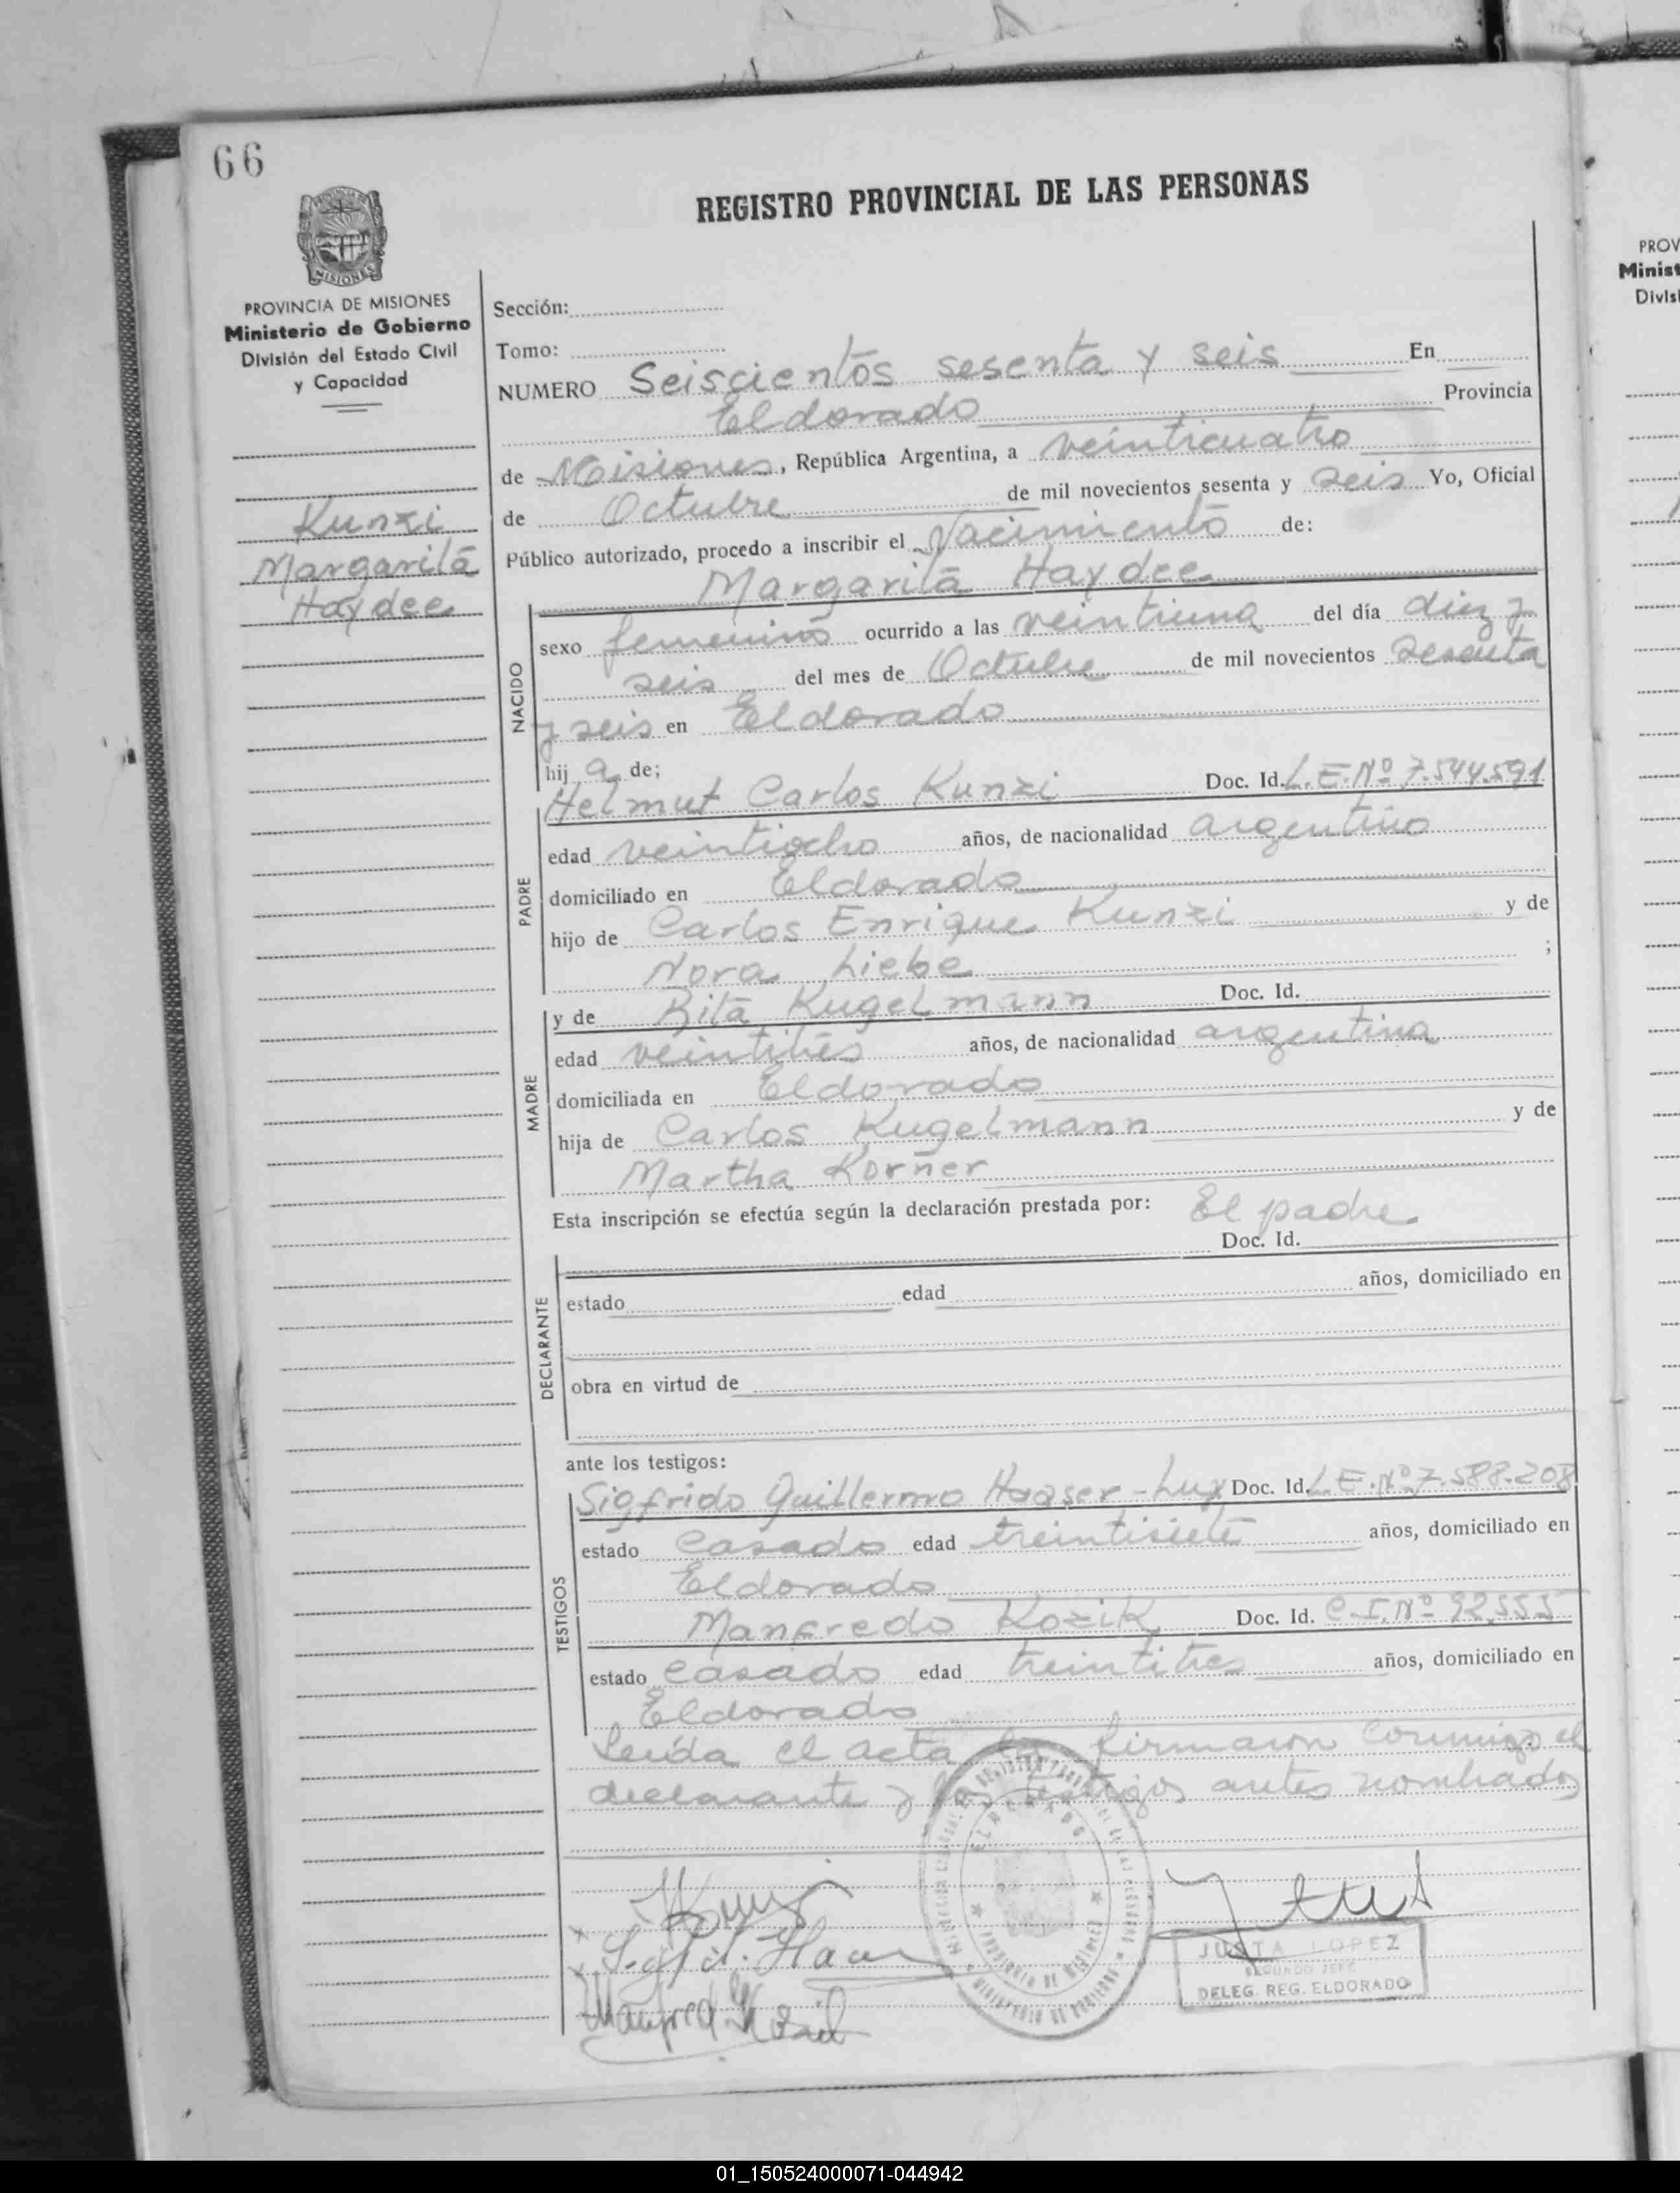 66
REGISTRO PROVINCIAL DE LAS PERSONAS
MISIONES
PROVINCIA DE MISIONES
Ministerio de Gobierno
División del Estado Civil
y Capacidad
Kunzi
Margarita
Haydee
Sección:
Tomo:
NUMERO Seiscientos sesenta y seis En
Eldorado Provincia
de Misiones, República Argentina, a veinticuatro
de Octubre de mil novecientos sesenta y seis Yo, Oficial
Público autorizado, procedo a inscribir el Nacimiento de:
Margarita Haydee
NACIDO
sexo femenino ocurrido a las veintiuna del día diez y
seis del mes de Octubre de mil novecientos sesenta
y seis en Eldorado
hij a de;
PADRE
Helmut Carlos Kunzi Doc. Id. L.E.Nº 7.544.591
edad veintiocho años, de nacionalidad argentino
domiciliado en Eldorado
hijo de Carlos Enrique Kunzi y de
Nora Liebe ;
MADRE
y de Rita Kugelmann Doc. Id.
edad veintitrés años, de nacionalidad argentina
domiciliada en Eldorado
hija de Carlos Kugelmann y de
Martha Korner
Esta inscripción se efectúa según la declaración prestada por: El padre
Doc. Id.
DECLARANTE
estado edad años, domiciliado en
obra en virtud de
ante los testigos:
TESTIGOS
Sigfrido Guillermo Haaser-Lux Doc. Id. L.E.Nº 7.588.208
estado casado edad treintisiete años, domiciliado en
Eldorado
Manfredo Kozik Doc. Id. C.I.Nº 92.555
estado casado edad treintitres años, domiciliado en
Eldorado
Leída el acta la firmaron conmigo el
declarante y los testigos antes nombrados
ELDORADO
PROVINCIA DE MISIONES
MINISTERIO DE GOBIERNO
Manfred Kozik
JUSTA LOPEZ
SEGUNDO JEFE
DELEG. REG. ELDORADO
PROV
Minist
Divis
01_150524000071-044942